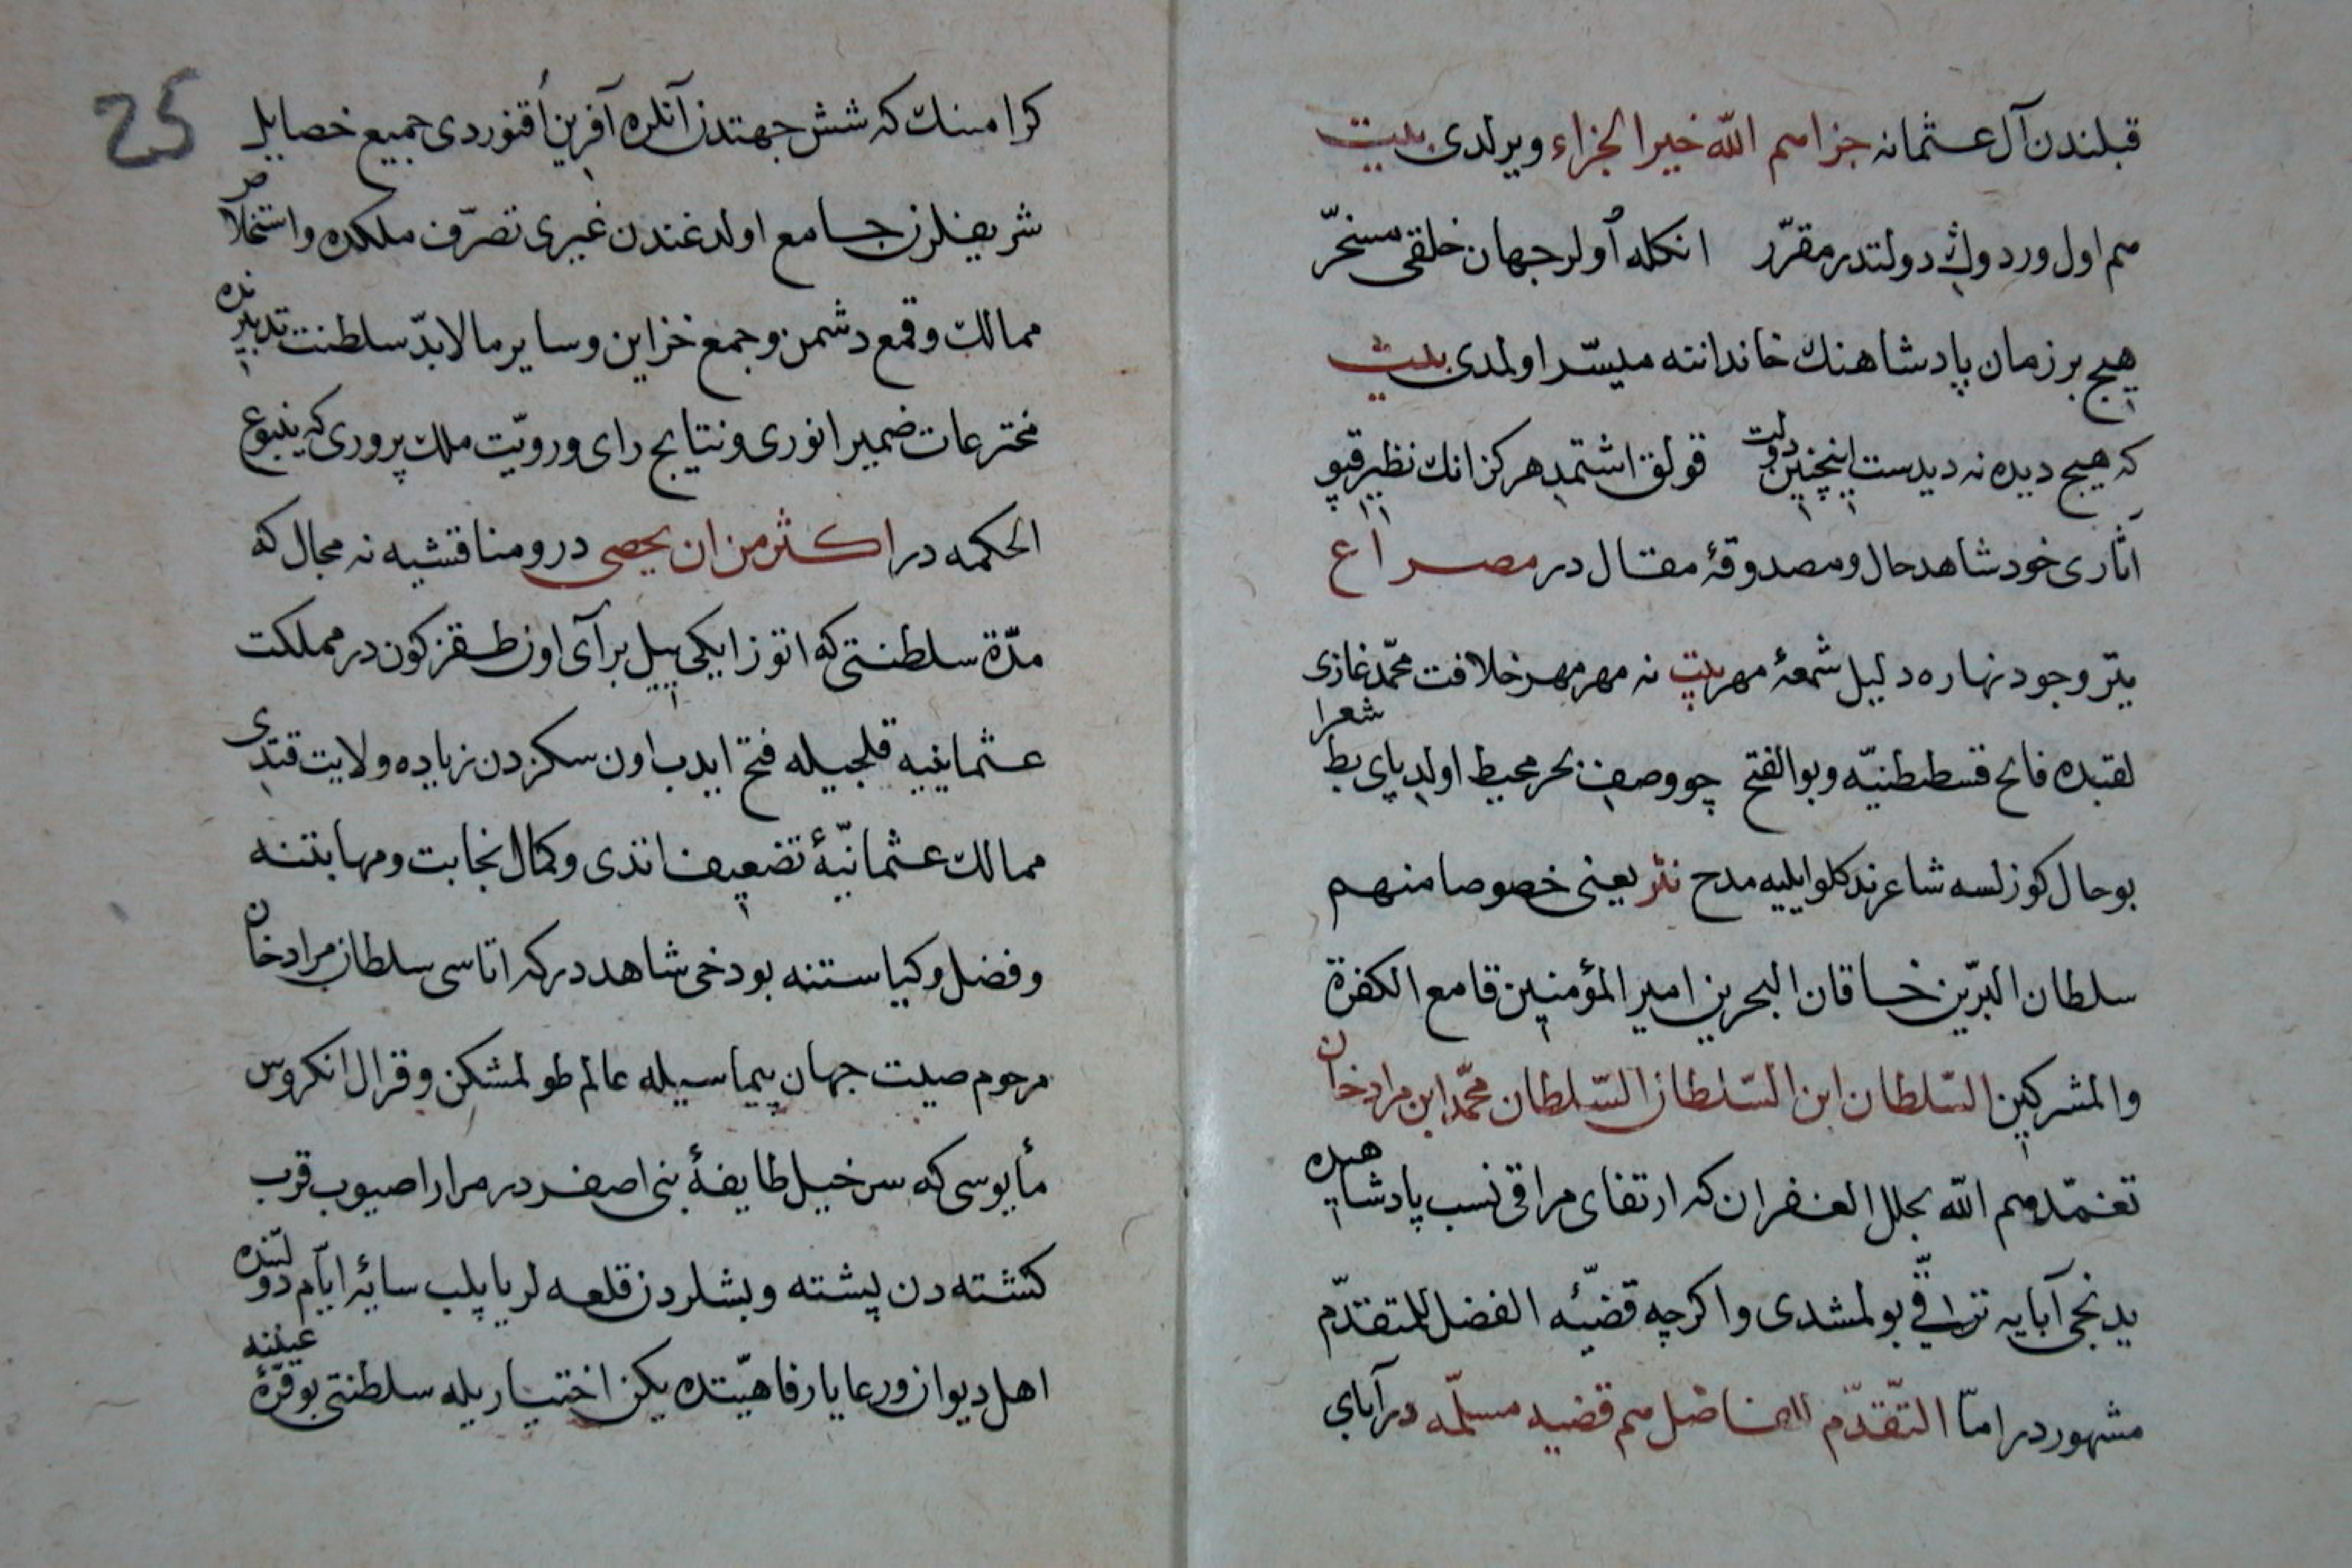 قبلندن آل عثمانه جزاهم الله خير الجزاء ويرلدى بيت
هم اول ورد وان دولتدر مقرّر انكله اولر جهان خلقى مسخّر
هيچ بر زمان پادشاهنك خاندانته ميسّر اولمدى بيت
كه هيچ ديده نه ديدست اينچنين دولت قولق اشتمد هركز انك نظير قپو
آثارى خود شاهد حال ومصدوقۀ مقال در مصراع
يتر وجود نهاره دليل شمعۀ مهر بيت نه مهر مهر خلافت محمّد غازى
لقبده فاتح قسطنطنيّه وبو الفتح چو وصف بحر محيط اولد پاى بط شعرا
بو حال كوزلسه شاعر ندكلو ايليه مدح نثر يعنى خصوصا منهم
سلطان البرّين خاقان البحرين امير المؤمنين قامع الكفرة
والمشركين السّلطان ابن السّلطان السّلطان محمّد ابن مراد خان
تغمّدهم الله بحلل الغفران كه ارتقاى مراقى نسب پادشاهيده
يدنجى آبايه ترقّى بولمشدى واكرچه قضيّۀ الفضل للمتقدّم
مشهور در امّا التّقدّم للفاضل هم قضيه مسلّمه در آباى
كرامينك كه شش جهتدن آنلره آفرين اقنوردى جميع خصايل
شريفلرن جامع اولدغندن غيرى تصرّف ملكده واستخلاص
ممالك وقمع دشمن وجمع خزاين وساير مالابدّ سلطنت تدبيرنده
مخترعات ضمير انورى ونتايج راى ورويّت ملك پرورى كه ينبوع
الحكمه در اكثر من ان يحصى در ومناقشيه نه مجال كه
مدّة سلطنتى كه اتوز ايكى ييل بر آى اون طقز كون در مملكت
عثمانييه قلجيله فتح ايدب اون سكزدن زياده ولايت قتدى
ممالك عثمانيّۀ تضعيف اتدى وكمال نجابت ومهابتنه
وفضل وكياستنه بو دخى شاهد دركه اتاسى سلطان مراد خان
مرحوم صيت جهان پيماسيله عالم طولمشكن وقرال انكروس
مأيوسى كه سرخيل طايفۀ بنى اصفر در مرارا صيوب قرب
كشته دن پشته وبشلردن قلعه لر ياپلب سايۀ ايّام دولتنده
اهل ديوان ورعايا رفاهيّتده يكن اختياريله سلطنتى بو قرّۀ عيننه
25